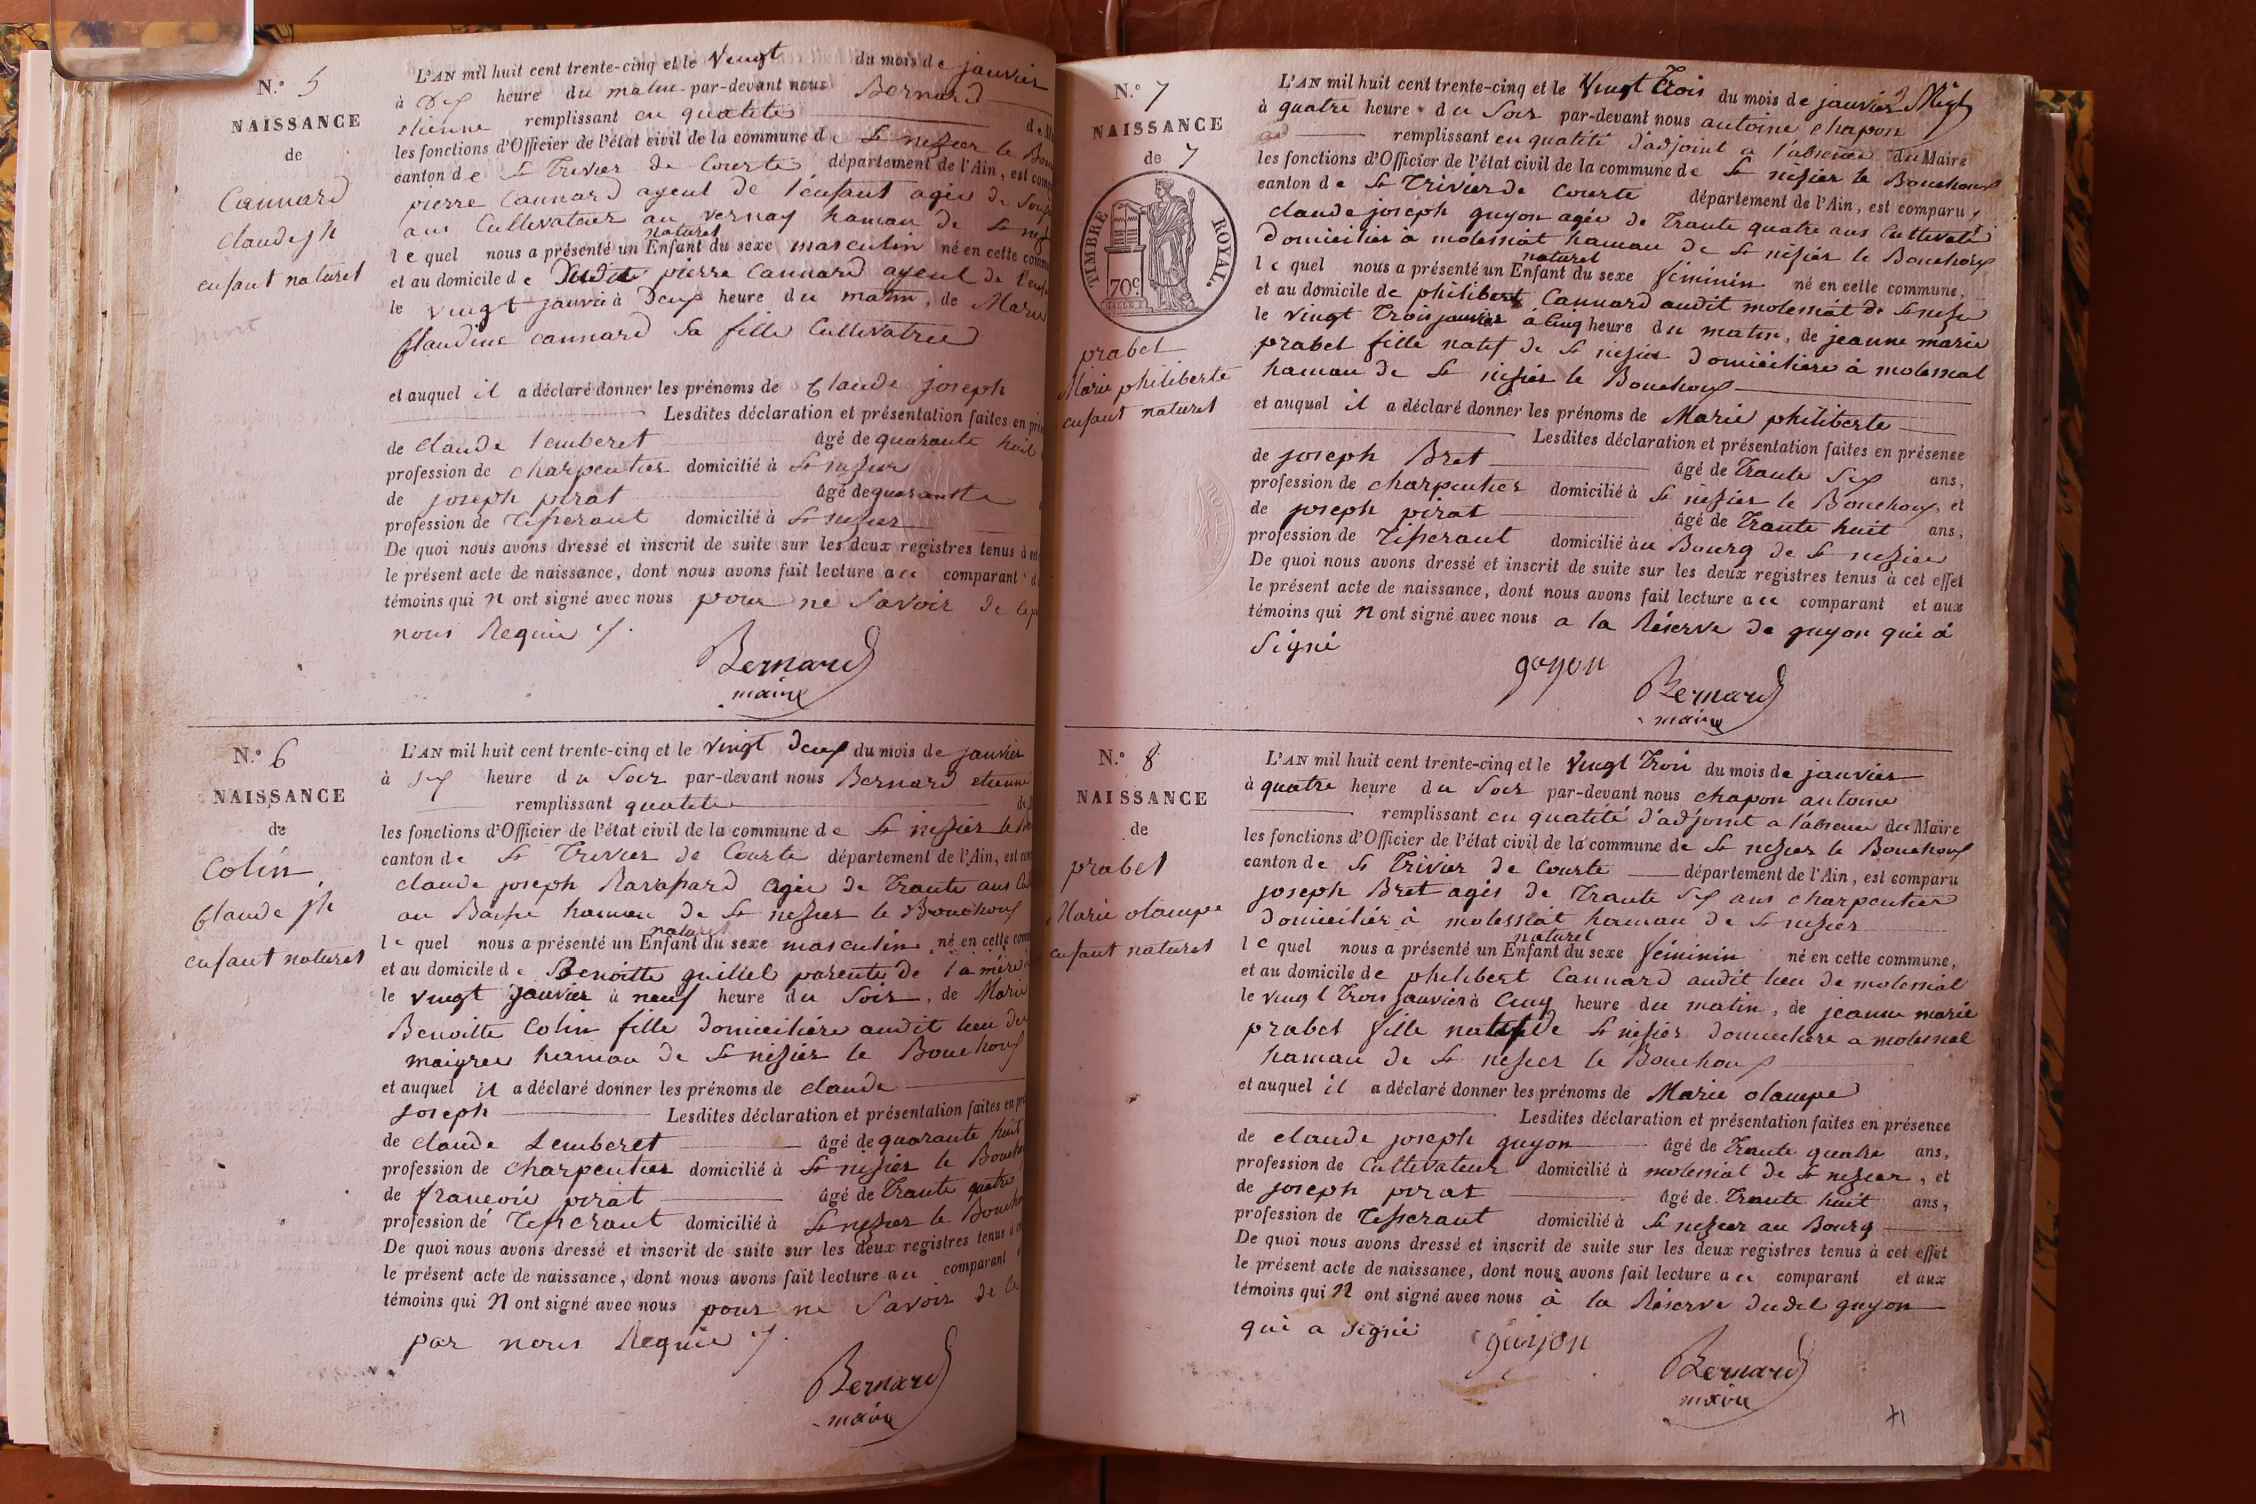 N.° 5
NAISSANCE
de
Cannard
Claude jh
enfant naturel
L'AN mil huit cent trente-cinq et le vingt du mois de janvier
à dix heure du matin par-devant nous Bernard
etienne remplissant en qualité
les fonctions d'Officier de l'état civil de la commune de St nizier le
canton de St Trivier de Courte département de l'Ain, est
pierre Cannard ayeul de l'enfant agée de
ans Cultivateur au vernay hamau de St
naturel
le quel nous a présenté un Enfant du sexe masculin né en cette
et au domicile de dudit pierre Cannard ayeul de
le vingt janvier à deux heure du matin, de Marie
Claudine cannard sa fille Cultivatrice
et auquel il a déclaré donner les prénoms de Claude joseph
Lesdites déclaration et présentation faites en
de claude lemberet âgé de quarante huit
profession de charpentier domicilié à St nizier
de joseph pirat âgé de quarante
profession de Tisserant domicilié à St nizier
De quoi nous avons dressé et inscrit de suite sur les deux registres tenus à
le présent acte de naissance, dont nous avons fait lecture au comparant
témoins qui n ont signé avec nous pour ne savoir de ce
nous Requie ./.
Bernard
maire
N.° 6
NAISSANCE
de
Colin
Claude jh
enfant naturel
L'AN mil huit cent trente-cinq et le vingt deux du mois de janvier
à six heure du soir par-devant nous Bernard etienne
remplissant qualité
les fonctions d'Officier de l'état civil de la commune de St nizier le
canton de St Trivier de Courte département de l'Ain, est
claude joseph Ravassard agée de Trante ans
au hamau de St nizier le Bouchoux
naturel
le quel nous a présenté un Enfant du sexe masculin né en cette
et au domicile de Benoitte guillel parente de la mère
le vingt janvier à neuf heure du soir, de Marie
Benoitte Colin fille domicilière audit lieu des
maigree hamau de St nizier le Bouchoux
et auquel il a déclaré donner les prénoms de claude
joseph Lesdites déclaration et présentation faites en
de claude Lemberet âgé de quarante huit
profession de charpentier domicilié à St nizier le
de françois pirat âgé de Trante quatre
profession de Tisserant domicilié à St nizier le
De quoi nous avons dressé et inscrit de suite sur les deux registres tenus
le présent acte de naissance, dont nous avons fait lecture au comparant
témoins qui n ont signé avec nous pour ne savoir de ce
par nous Requie ./.
Bernard
maire
N.° 7
NAISSANCE
de 7
TIMBRE ROYAL.
70c
prabel
Marie philiberte
enfant naturel
L'AN mil huit cent trente-cinq et le vingt Trois du mois de janvier
à quatre heure du soir par-devant nous antoine chapon
remplissant en qualité d'adjoint a l'absence du Maire
les fonctions d'Officier de l'état civil de la commune de St nizier le Bouchoux
canton de St Trivier de Courte département de l'Ain, est comparu
claude joseph guyon agée de Trante quatre ans Cultivateur
domicilier à molessiat hamau de St nizier le Bouchoux
naturel
le quel nous a présenté un Enfant du sexe féminin né en cette commune,
et au domicile de philibert Cannard audit molessiat de St nizier
le vingt Trois janvier à cinq heure du matin, de jeanne marie
prabel fille natif de St nizier domicilière à molessiat
hamau de St nizier le Bouchoux
et auquel il a déclaré donner les prénoms de Marie philiberte
Lesdites déclaration et présentation faites en présence
de joseph Bret âgé de Trante Six ans,
profession de charpentier domicilié à St nizier le Bouchoux, et
de joseph pirat âgé de Trante huit ans,
profession de Tisserant domicilié au Bourg de St nizier
De quoi nous avons dressé et inscrit de suite sur les deux registres tenus à cet effet
le présent acte de naissance, dont nous avons fait lecture au comparant et aux
témoins qui n ont signé avec nous a la Réserve de guyon qui a
signé
guyon
Bernard
maire
N.° 8
NAISSANCE
de
prabel
Marie olampe
enfant naturel
L'AN mil huit cent trente-cinq et le vingt Trois du mois de janvier
à quatre heure du soir par-devant nous chapon antoine
remplissant en qualité d'adjoint a l'absence du Maire
les fonctions d'Officier de l'état civil de la commune de St nizier le Bouchoux
canton de St Trivier de Courte département de l'Ain, est comparu
joseph Bret agés de Trante Six ans charpentier
domicilier à molessiat hamau de St nizier
naturel
le quel nous a présenté un Enfant du sexe féminin né en cette commune,
et au domicile de philibert Cannard audit lieu de molessiat
le vingt Trois janvier à cinq heure du matin, de jeanne marie
prabel fille natif de St nizier domicilière a molessiat
hamau de St nizier le Bouchoux
et auquel il a déclaré donner les prénoms de Marie olampe
Lesdites déclaration et présentation faites en présence
de claude joseph guyon âgé de Trante quatre ans,
profession de Cultivateur domicilié à molessiat de St nizier, et
de joseph pirat âgé de Trante huit ans,
profession de Tisserant domicilié à St nizier au Bourg
De quoi nous avons dressé et inscrit de suite sur les deux registres tenus à cet effet
le présent acte de naissance, dont nous avons fait lecture au comparant et aux
témoins qui n ont signé avec nous à la Réserve dudit guyon
qui a signé
guyon
Bernard
maire